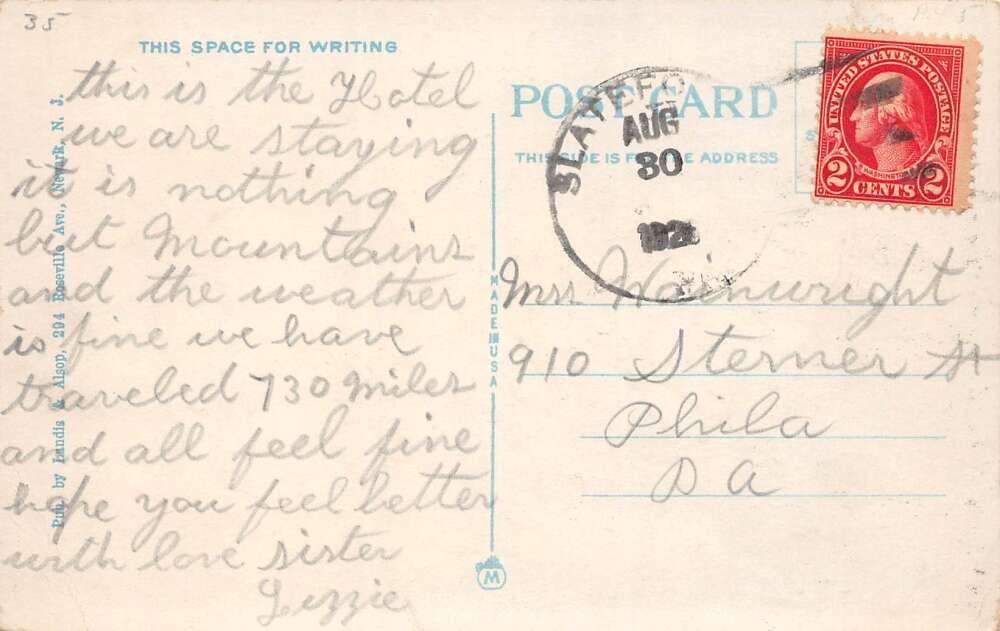 35
THIS SPACE FOR WRITING
this is the Hotel
we are staying
it is nothing
but Mountains
and the weather
is fine we have
traveled 730 miles
and all feel fine
hope you feel better
with love sister
Lizzie
Pub. by Landis & Alsop, 294 Roseville Ave., Newark, N. J.
MADE IN USA
M
POST CARD
THIS SIDE IS FOR THE ADDRESS
AUG
30
UNITED STATES POSTAGE
WASHINGTON
2 CENTS 2
Mrs Wainwright
910 Sterner St
Phila
Pa